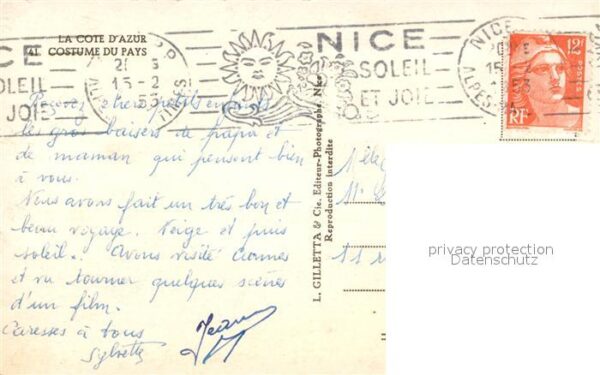 LA COTE D'AZUR
41 COSTUME DU PAYS
NICE
SOLEIL
ET JOIE
NICE
SOLEIL
ET JOIE
NICE
15-2
ALPES-
12F
POSTES
RF
Recevez chers petits enfants
les gros baisers de papa et
de maman qui pensent bien
à vous.
Nous avons fait un très bon et
beau voyage. Neige et puis
soleil. Avons visité Cannes
et vu tourner quelques scènes
d'un film.
Caresses à tous
Sylvette
Jean
L. GILLETTA & Cie. Editeur-Photographe, Nice
Reproduction interdite
11 r
privacy protection
Datenschutz